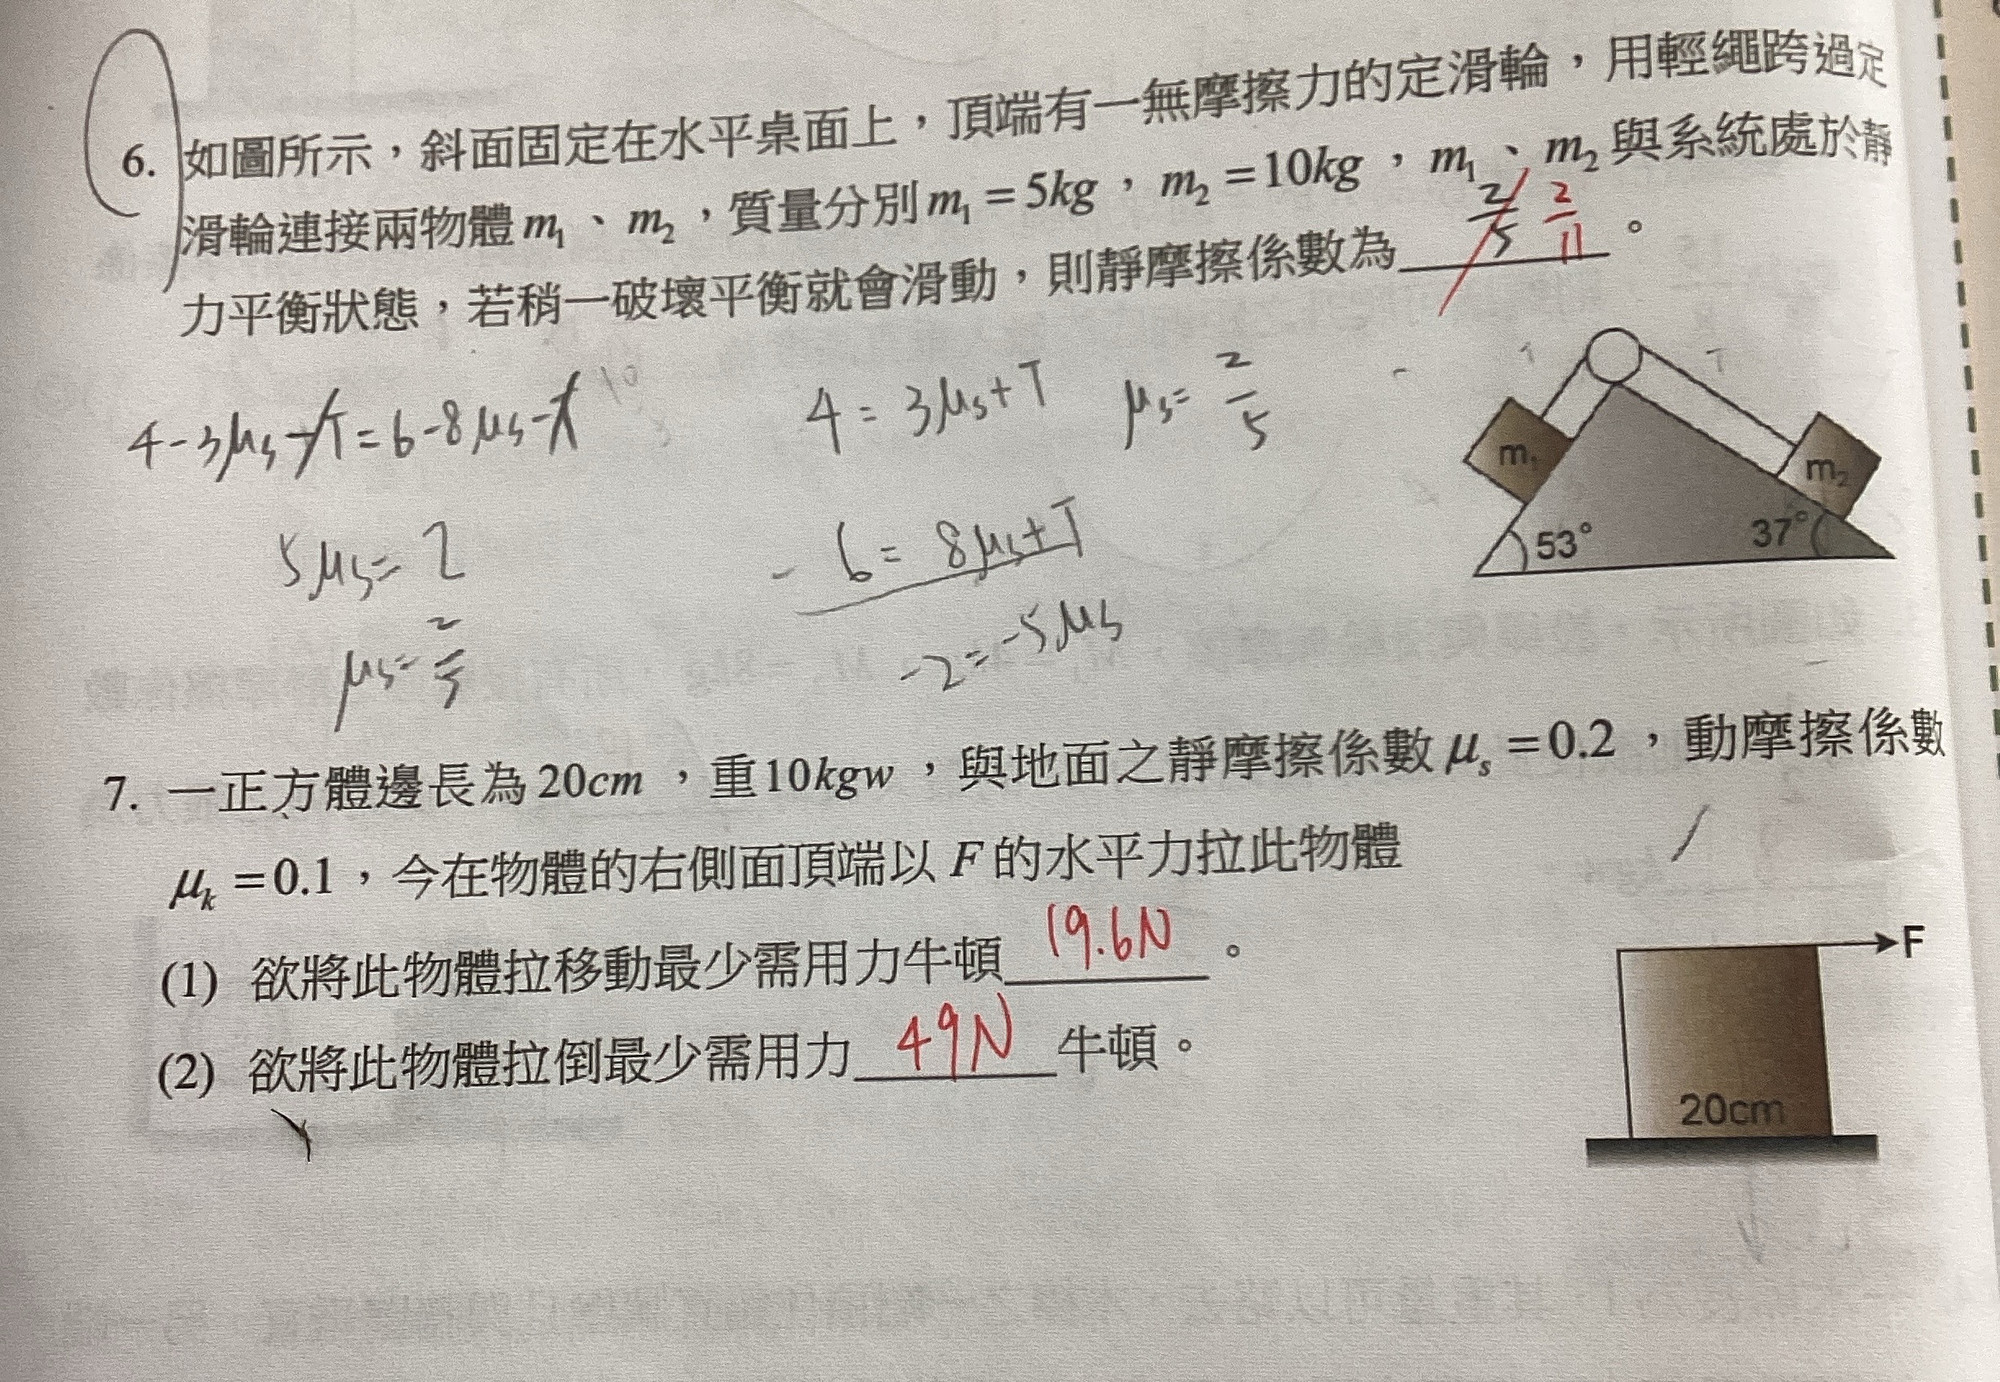 6. 如圖所示，斜面固定在水平桌面上，頂端有一無摩擦力的定滑輪，用輕繩跨過定
滑輪連接兩物體 m₁、m₂，質量分別 m₁ = 5kg，m₂ = 10kg，m₁、m₂ 與系統處於靜
力平衡狀態，若稍一破壞平衡就會滑動，則靜摩擦係數為 2/5 2/11 。
4-3μs-T=6-8μs-T
5μs=2
μs=2/5
4=3μs+T μs=2/5
- 6=8μs+T
-2=-5μs
T
m₁
m₂
53°
37°
7. 一正方體邊長為 20cm，重 10kgw，與地面之靜摩擦係數 μs = 0.2，動摩擦係數
μk = 0.1，今在物體的右側面頂端以 F 的水平力拉此物體
(1) 欲將此物體拉移動最少需用力牛頓 19.6N 。
(2) 欲將此物體拉倒最少需用力 49N 牛頓。
F
20cm